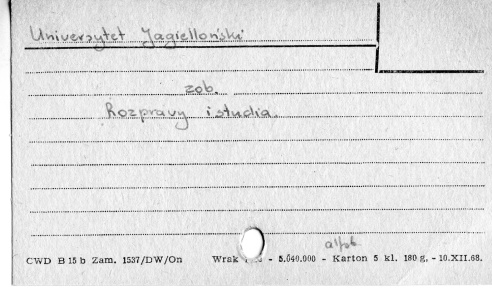 Uniwersytet Jagielloński
zob.
Rozprawy i studia.
alfab.
CWD B 15 b Zam. 1537/DW/On Wrak - 5.040.000 - Karton 5 kl. 180 g. - 10.XII.68.